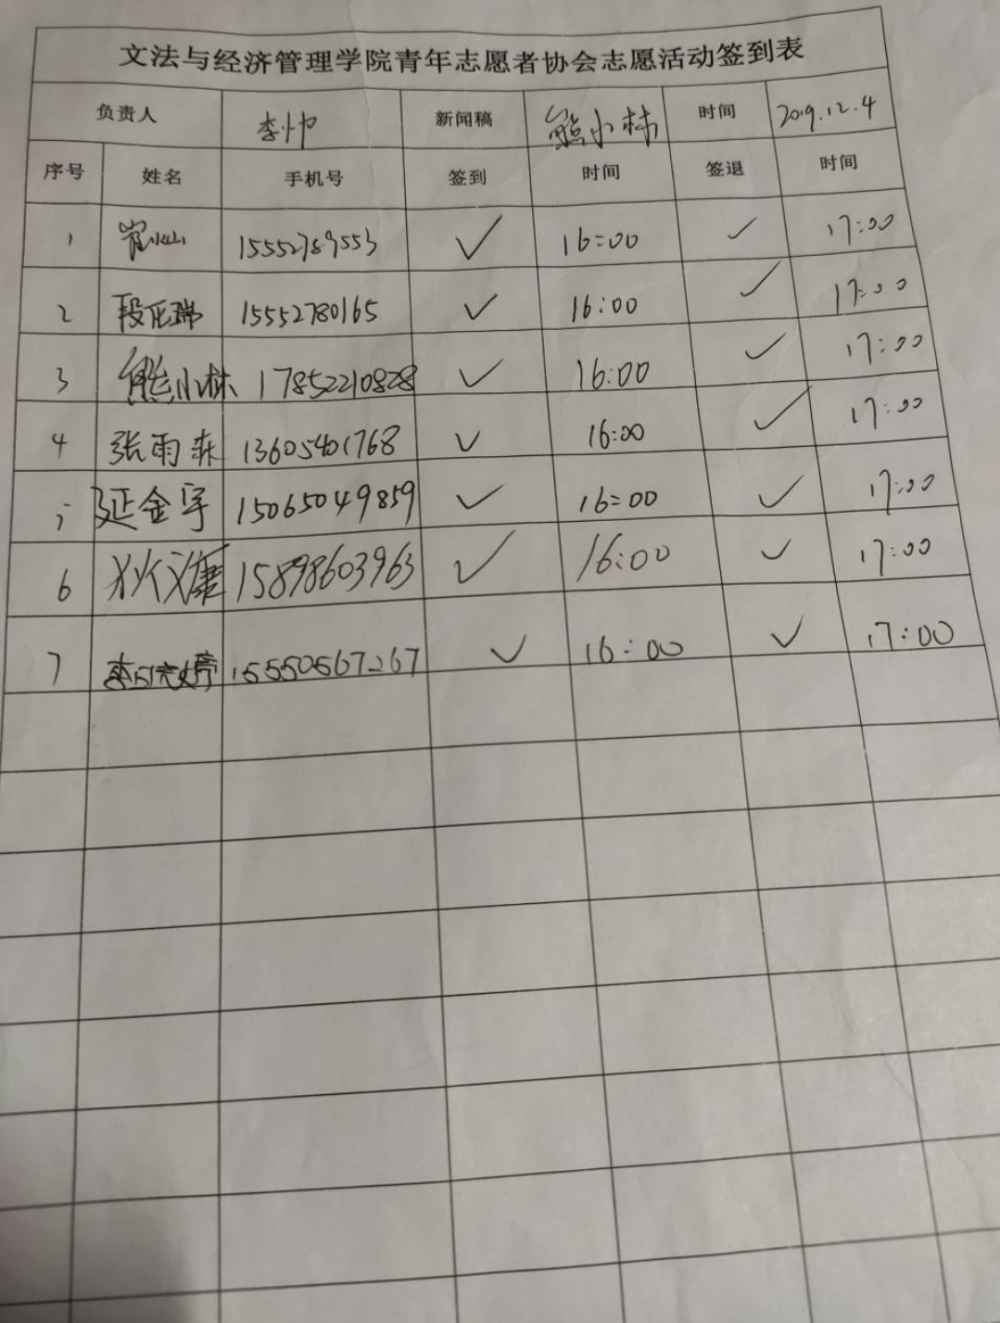 文法与经济管理学院青年志愿者协会志愿活动签到表
负责人 李帅 新闻稿 熊小林 时间 2019.12.4
序号 姓名 手机号 签到 时间 签退 时间
1 15552789553 ✓ 16:00 ✓ 17:00
2 段正瑞 15552780165 ✓ 16:00 ✓ 17:00
3 熊小林 17852210828 ✓ 16:00 ✓ 17:00
4 张雨森 13605401768 ✓ 16:00 ✓ 17:00
5 延金宇 15065049859 ✓ 16:00 ✓ 17:00
6 15898603963 ✓ 16:00 ✓ 17:00
7 15550567267 ✓ 16:00 ✓ 17:00